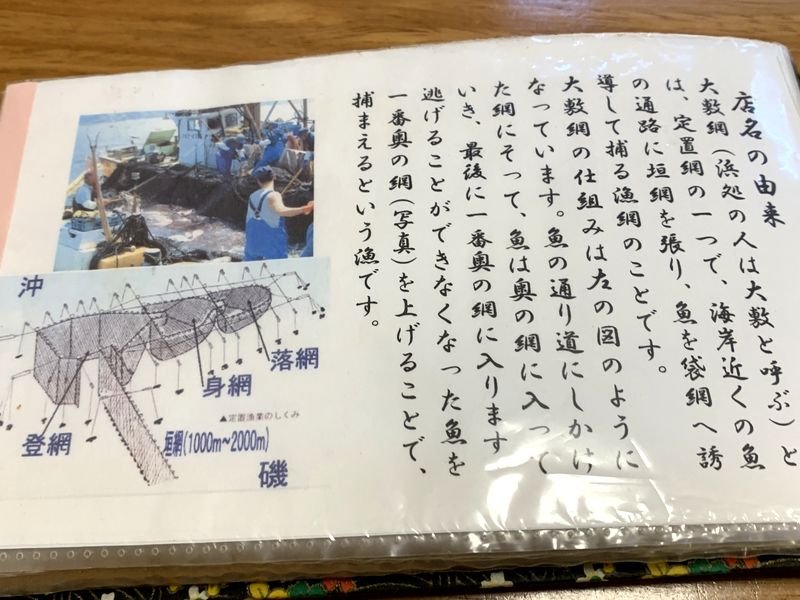 店名の由来
大敷網（浜処の人は大敷と呼ぶ）と
は、定置網の一つで、海岸近くの魚
の通路に垣網を張り、魚を袋網へ誘
導して捕る漁網のことです。
大敷網の仕組みは左の図のように
なっています。魚の通り道にしかけ
た網にそって、魚は奥の網に入って
いき、最後に一番奥の網に入ります
逃げることができなくなった魚を
一番奥の網（写真）を上げることで、
捕まえるという漁です。
沖
落網
身網
▲定置漁業のしくみ
登網
垣網(1000m～2000m)
磯